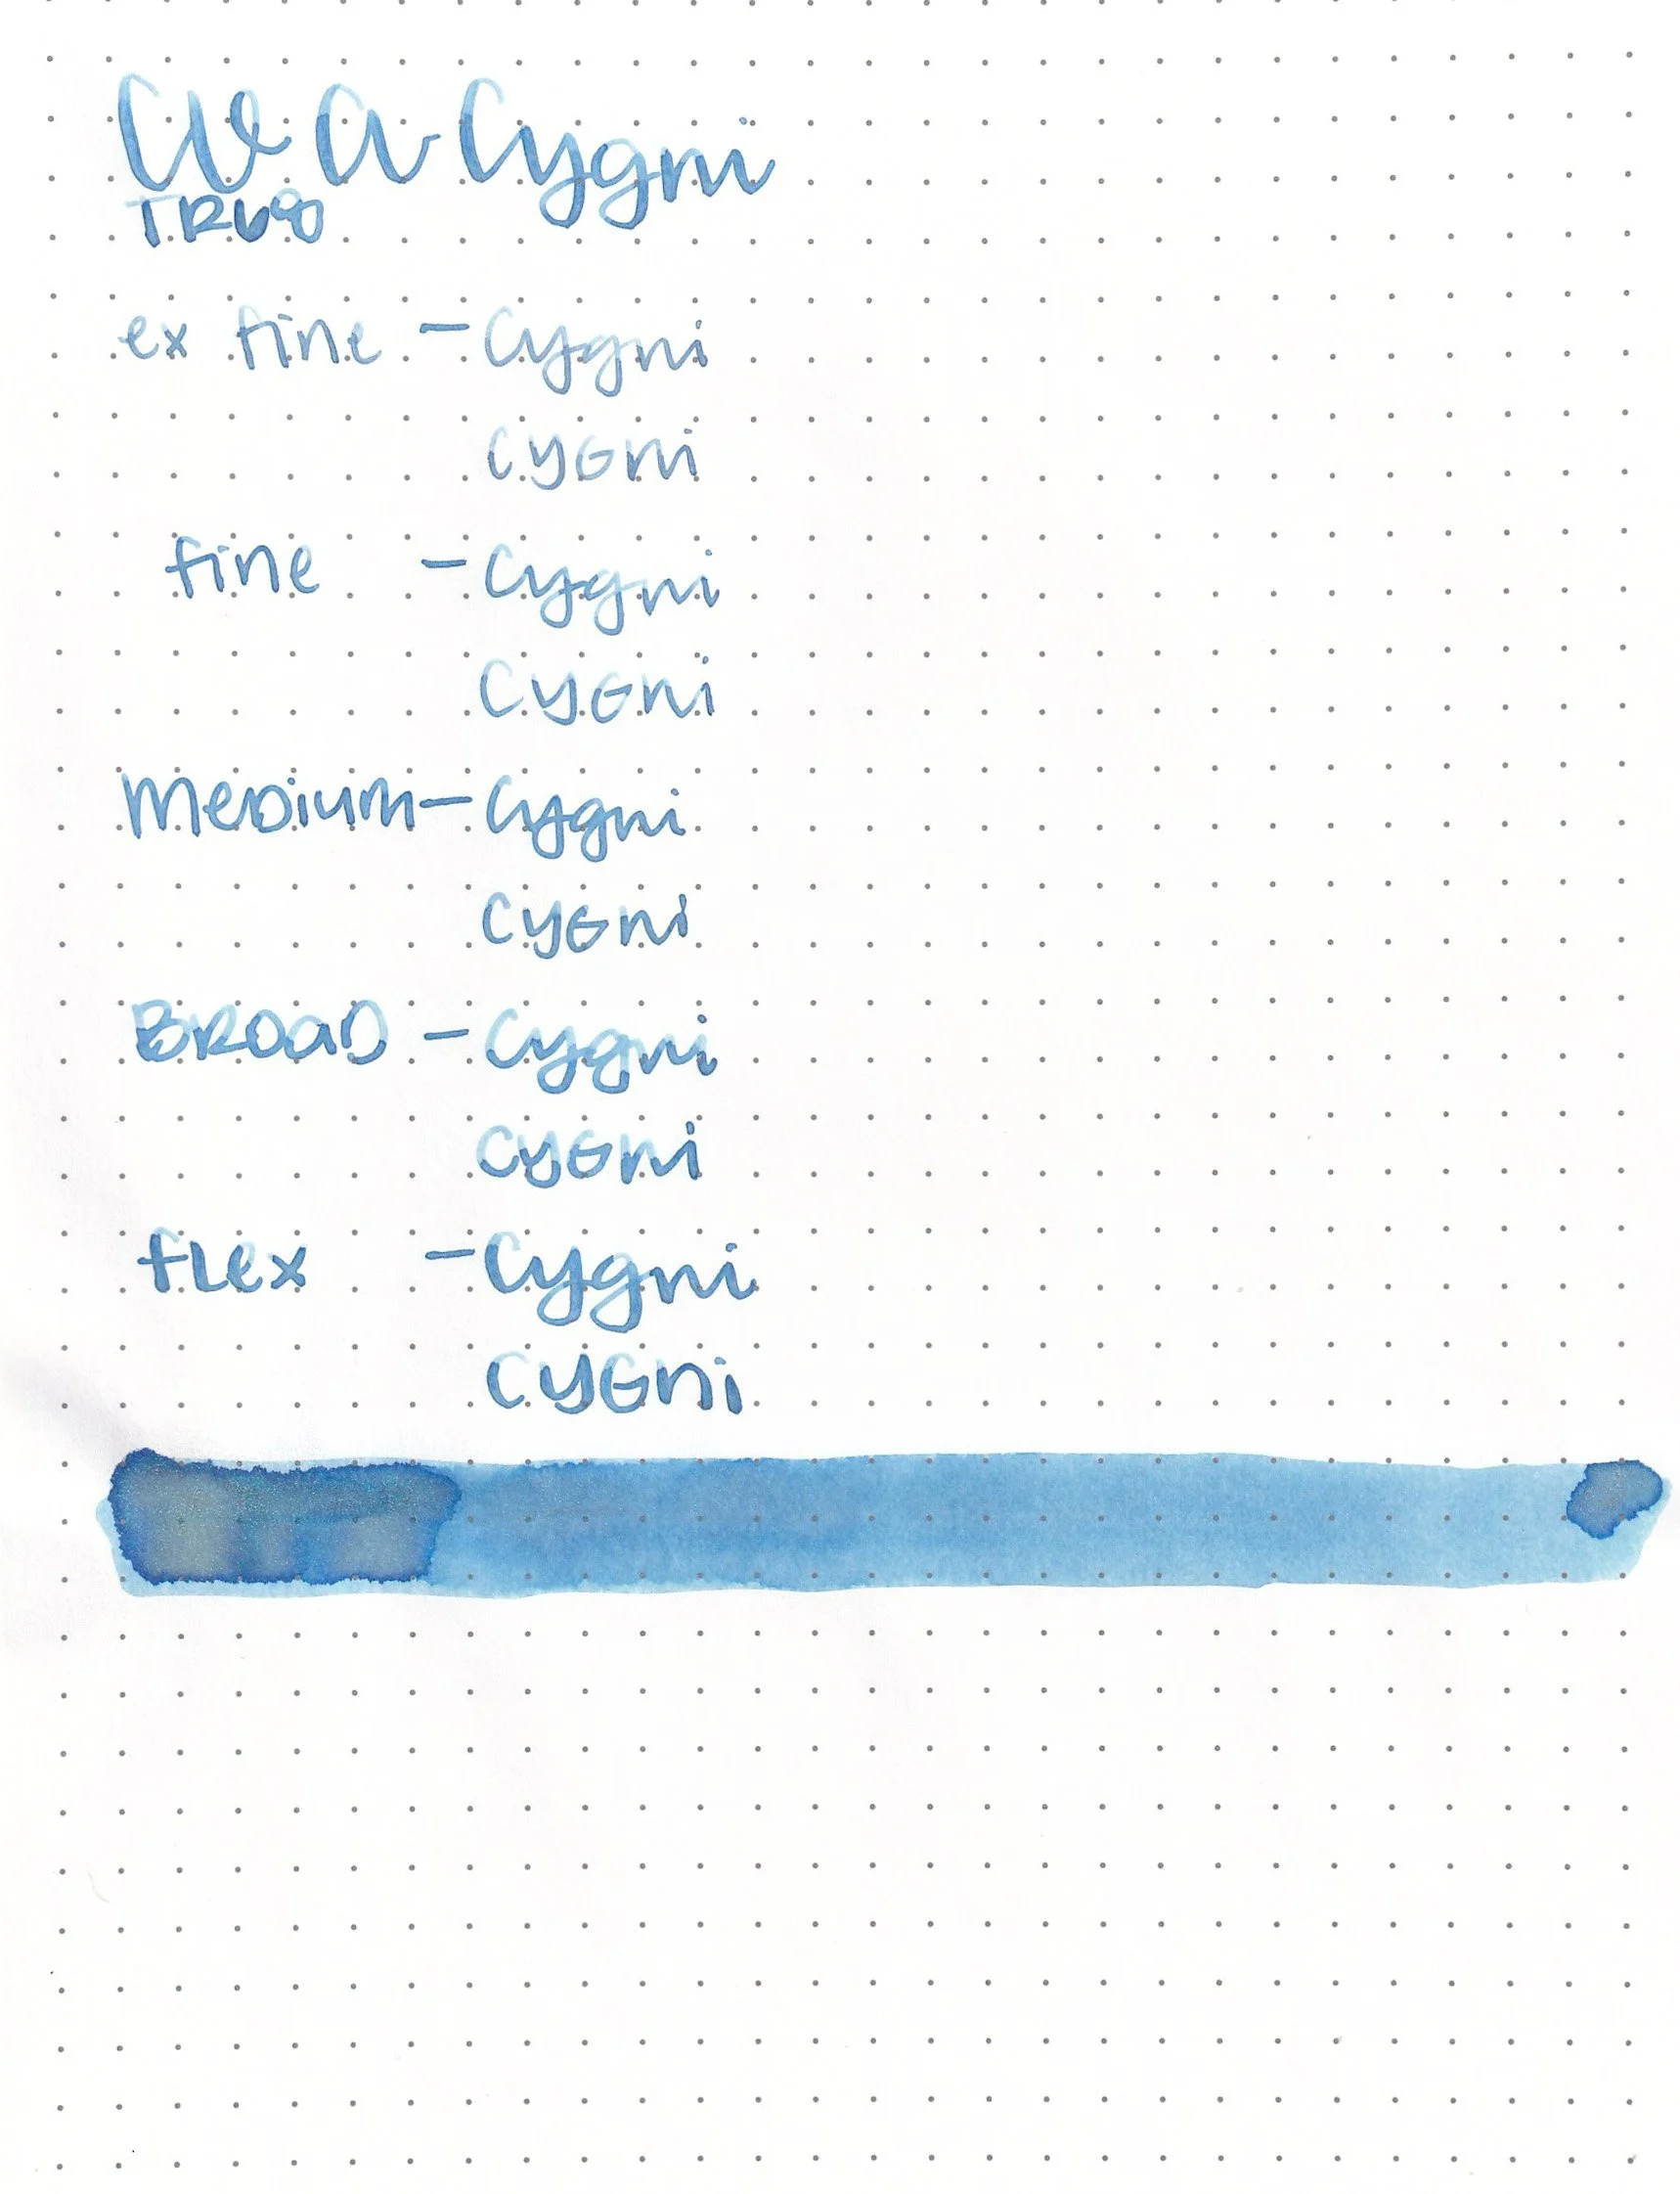 CV α Cygni
TR68
ex fine – Cygni
CYGni
fine – Cygni
CYGni
Medium – Cygni
CYGni
BROAD – Cygni
CYGni
flex – Cygni
CYGni